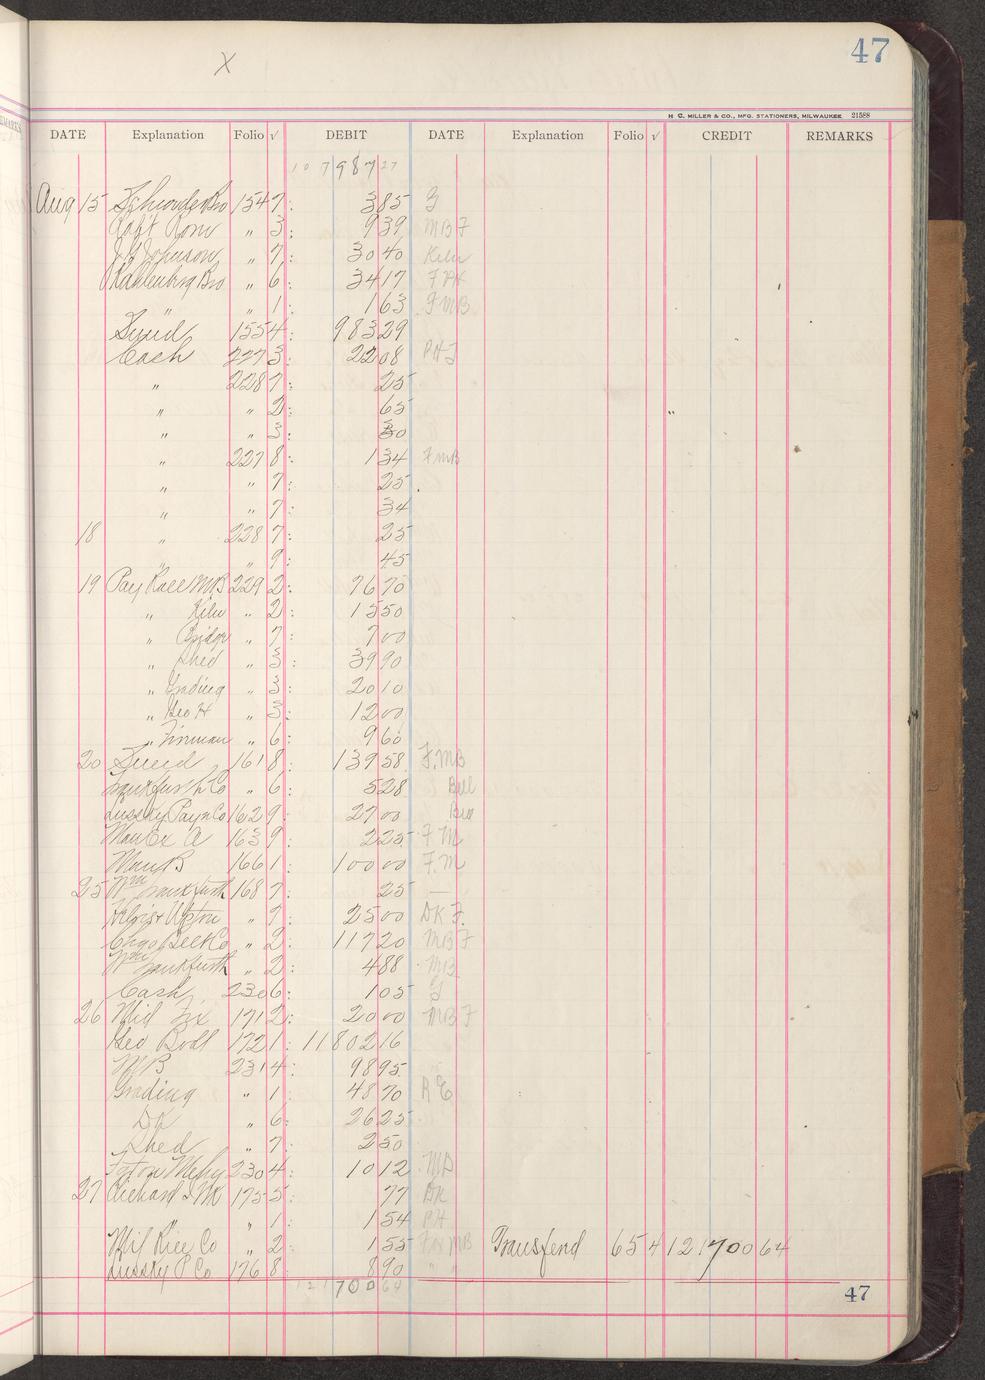 X
47
H. C. MILLER & CO., MFG. STATIONERS, MILWAUKEE 21588
EMARKS
DATE Explanation Folio √ DEBIT DATE Explanation Folio √ CREDIT REMARKS
10 7987 27
Aug 15 Schroeder Bro 154 7 : 3 85 G
" 3 : 9 39 MB F
J J Johnson " 7 : 30 40 Kiln
Kahlenberg Bro " 6 : 34 17 F PH
" " 1 : 1 63 F MB
Sund 155 4 : 983 29
Cash 227 3 : 22 08 PH F
" 228 7 : 25
" " 2 : 65
" " 3 : 30
" 227 8 : 1 34 F MB
" " 7 : 25
" " 7 : 34
18 " 228 7 : 25
" " 9 : 45
19 Pay Roll MB 229 2 : 76 70
" Kiln " 2 : 15 50
" Bridge " 7 : 7 00
" Shed " 3 : 39 90
" Grading " 3 : 20 10
" Geo H " 3 : 12 00
" Fireman " 6 : 9 60
20 Sund 161 8 : 139 58 F. MB
Frankfurth Co " 6 : 5 28 Bell
Lussky Payn Co 162 9 : 27 00
Man Ex A 163 9 : 2 25 F M
Man B 166 1 : 100 00 F. M
25 Wm Frankfurth 168 7 : 25 —
" 7 : 25 00 DK F.
Chgo Belt Co " 2 : 117 20 MB F
Wm Frankfurth " 2 : 4 88 MB
Cash 230 6 : 1 05 G
26 Mid Fix 171 2 : 20 00 MB F
Geo Bodt 172 1 : 11802 16
MB 231 4 : 98 95
Grading " 1 : 48 70 R E
DK " 6 : 26 25
Shed " 7 : 2 50
230 4 : 10 12 MB
27 175 5 : 77 DK
" " 1 : 1 54 PH
Mil Rice Co " 2 : 1 55 MB Transferd 65 4 121700 64
Lussky P Co 176 8 : 8 90 " "
121700 64
47